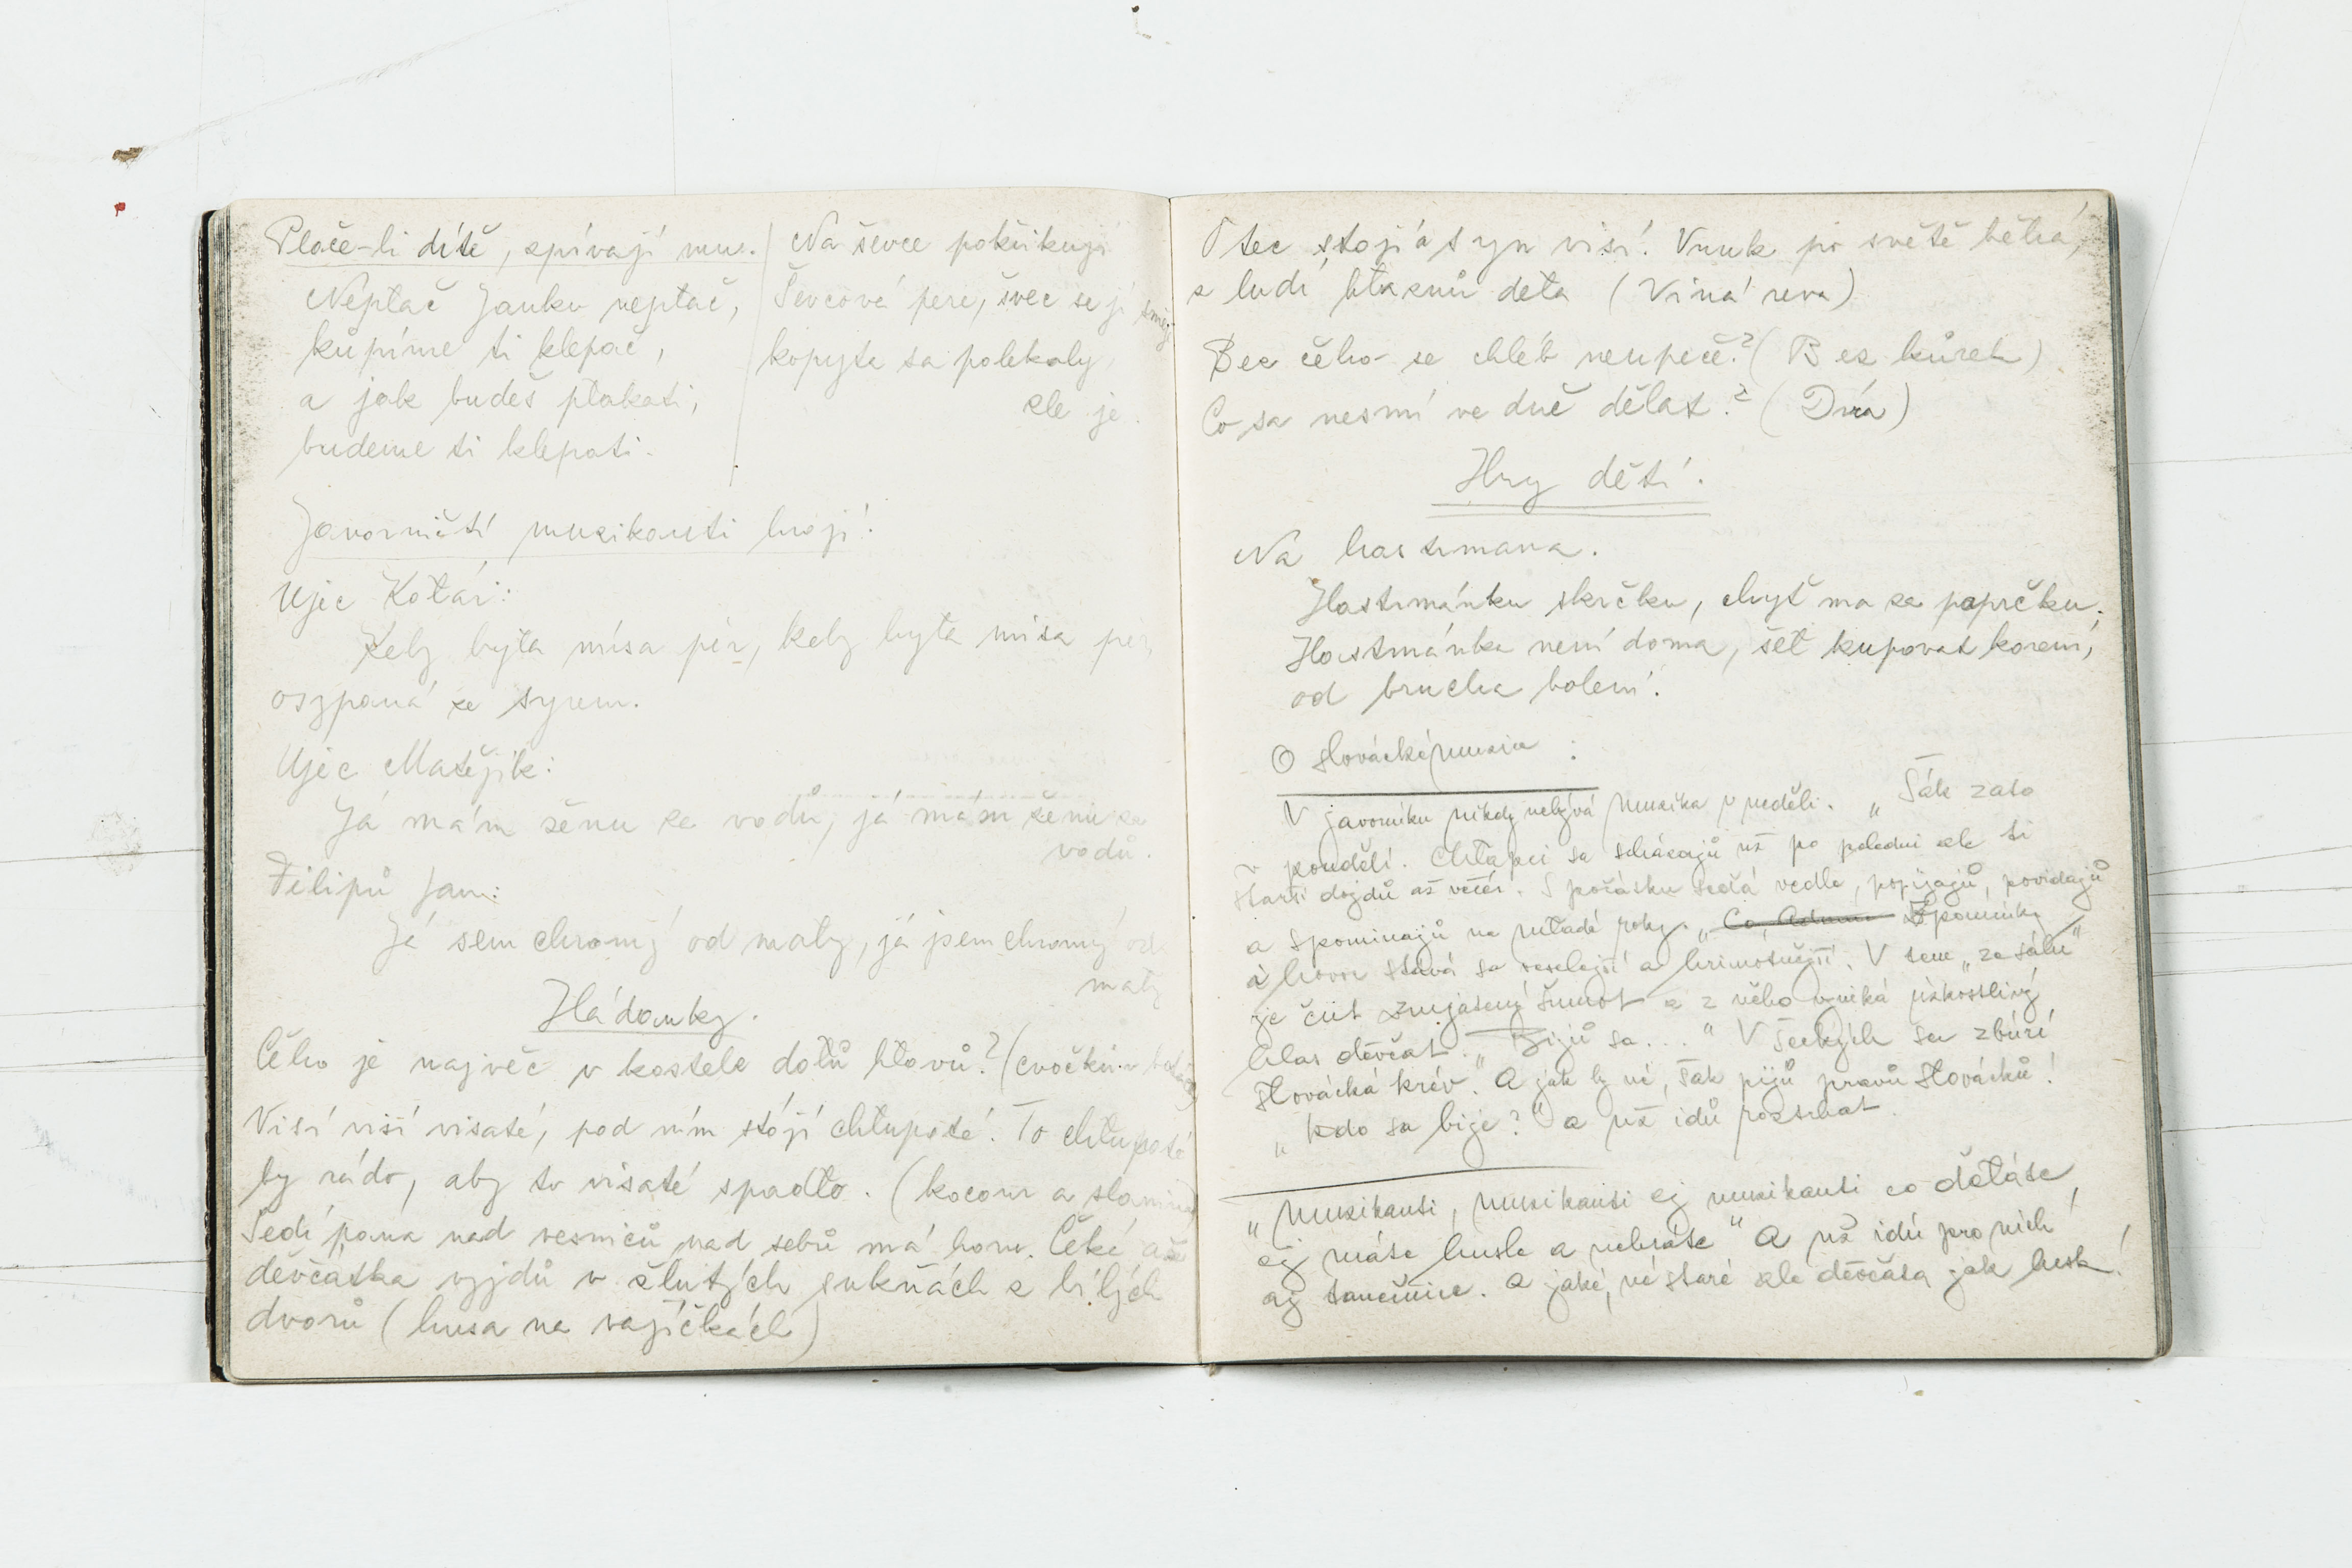 Plače-li dítě, zpívají mu:
Néptač Janku neptač,
kúpíme ti klepač,
a jak budeš ptakati,
budeme ti klepati.
Na ševce pokřikují
Ševcová pere, švec se jí směje
kopyta sa polekaly,
zle je.
Javorničtí muzikanti hrají:
Ujec Kotár:
Keby byta mísa pér, keby byta mísa pér
osypaná ze syrem.
Ujec Matějík:
Já mám ženu za vodú, já mám ženu za
vodú.
Filipú Jan:
Já sem chromý od maty, já jsem chromý od
maty
Hádanky.
Čeho je najvěč v kostele dołů hłavú? (cvočků v botách)
Visí visí visaté, pod ním stójí chłupaté. To chłupaté
by rádo, aby to visaté spadło. (kocour a slanina)
Sedí pana nad vesnicú nad sebú má horu. Čeká až
děvčátka vyjdú v žlutých sukňách z bílých
dvorú (husa na vajíčkách)
Otec stojí a syn visí. Vnuk po světě běhá,
z ludí błaznú děłá (Viná réva)
Bez čeho se chléb neupeče? (Bez kůrek)
Co sa nesmí ve dně dělat? (Díra)
Hry dětí.
Na hastrmana.
Hastrmánku skrčku, chyť ma za paprčku.
Hastrmánka není doma, šéł kupovat kořeni,
od brucha bolení.
O slovácké muzice:
V Javorníku nikdy nebývá muzika v neděli. „Šák zato
v pondělí. Chłapci sa scházajú už po poledni ale ti
starší dojdú až večér. S počátku sedá vedle, popíjajú, povídajú
a spomínajú na mładé roky. „Co, Spomínky
a hovor stává sa veselejší a hřmotnější. V tem „ze sálu"
je čut zmjatený šumot a z něho vyniká úzkostlivý
hlas děvčat. „Bijú sa..." V šeckých sa zbúří
slovácká krév. A jak by né, šak pijú pravú slovácků!
„Kdo sa bije?" a už idú roztrhat.
„Muzikanti, muzikanti ej muzikanti co děłáte,
ej máte husle a nehráte" A už idú pro ních
aj tanečnice. A jaké, né staré ale děvčata jak husk!